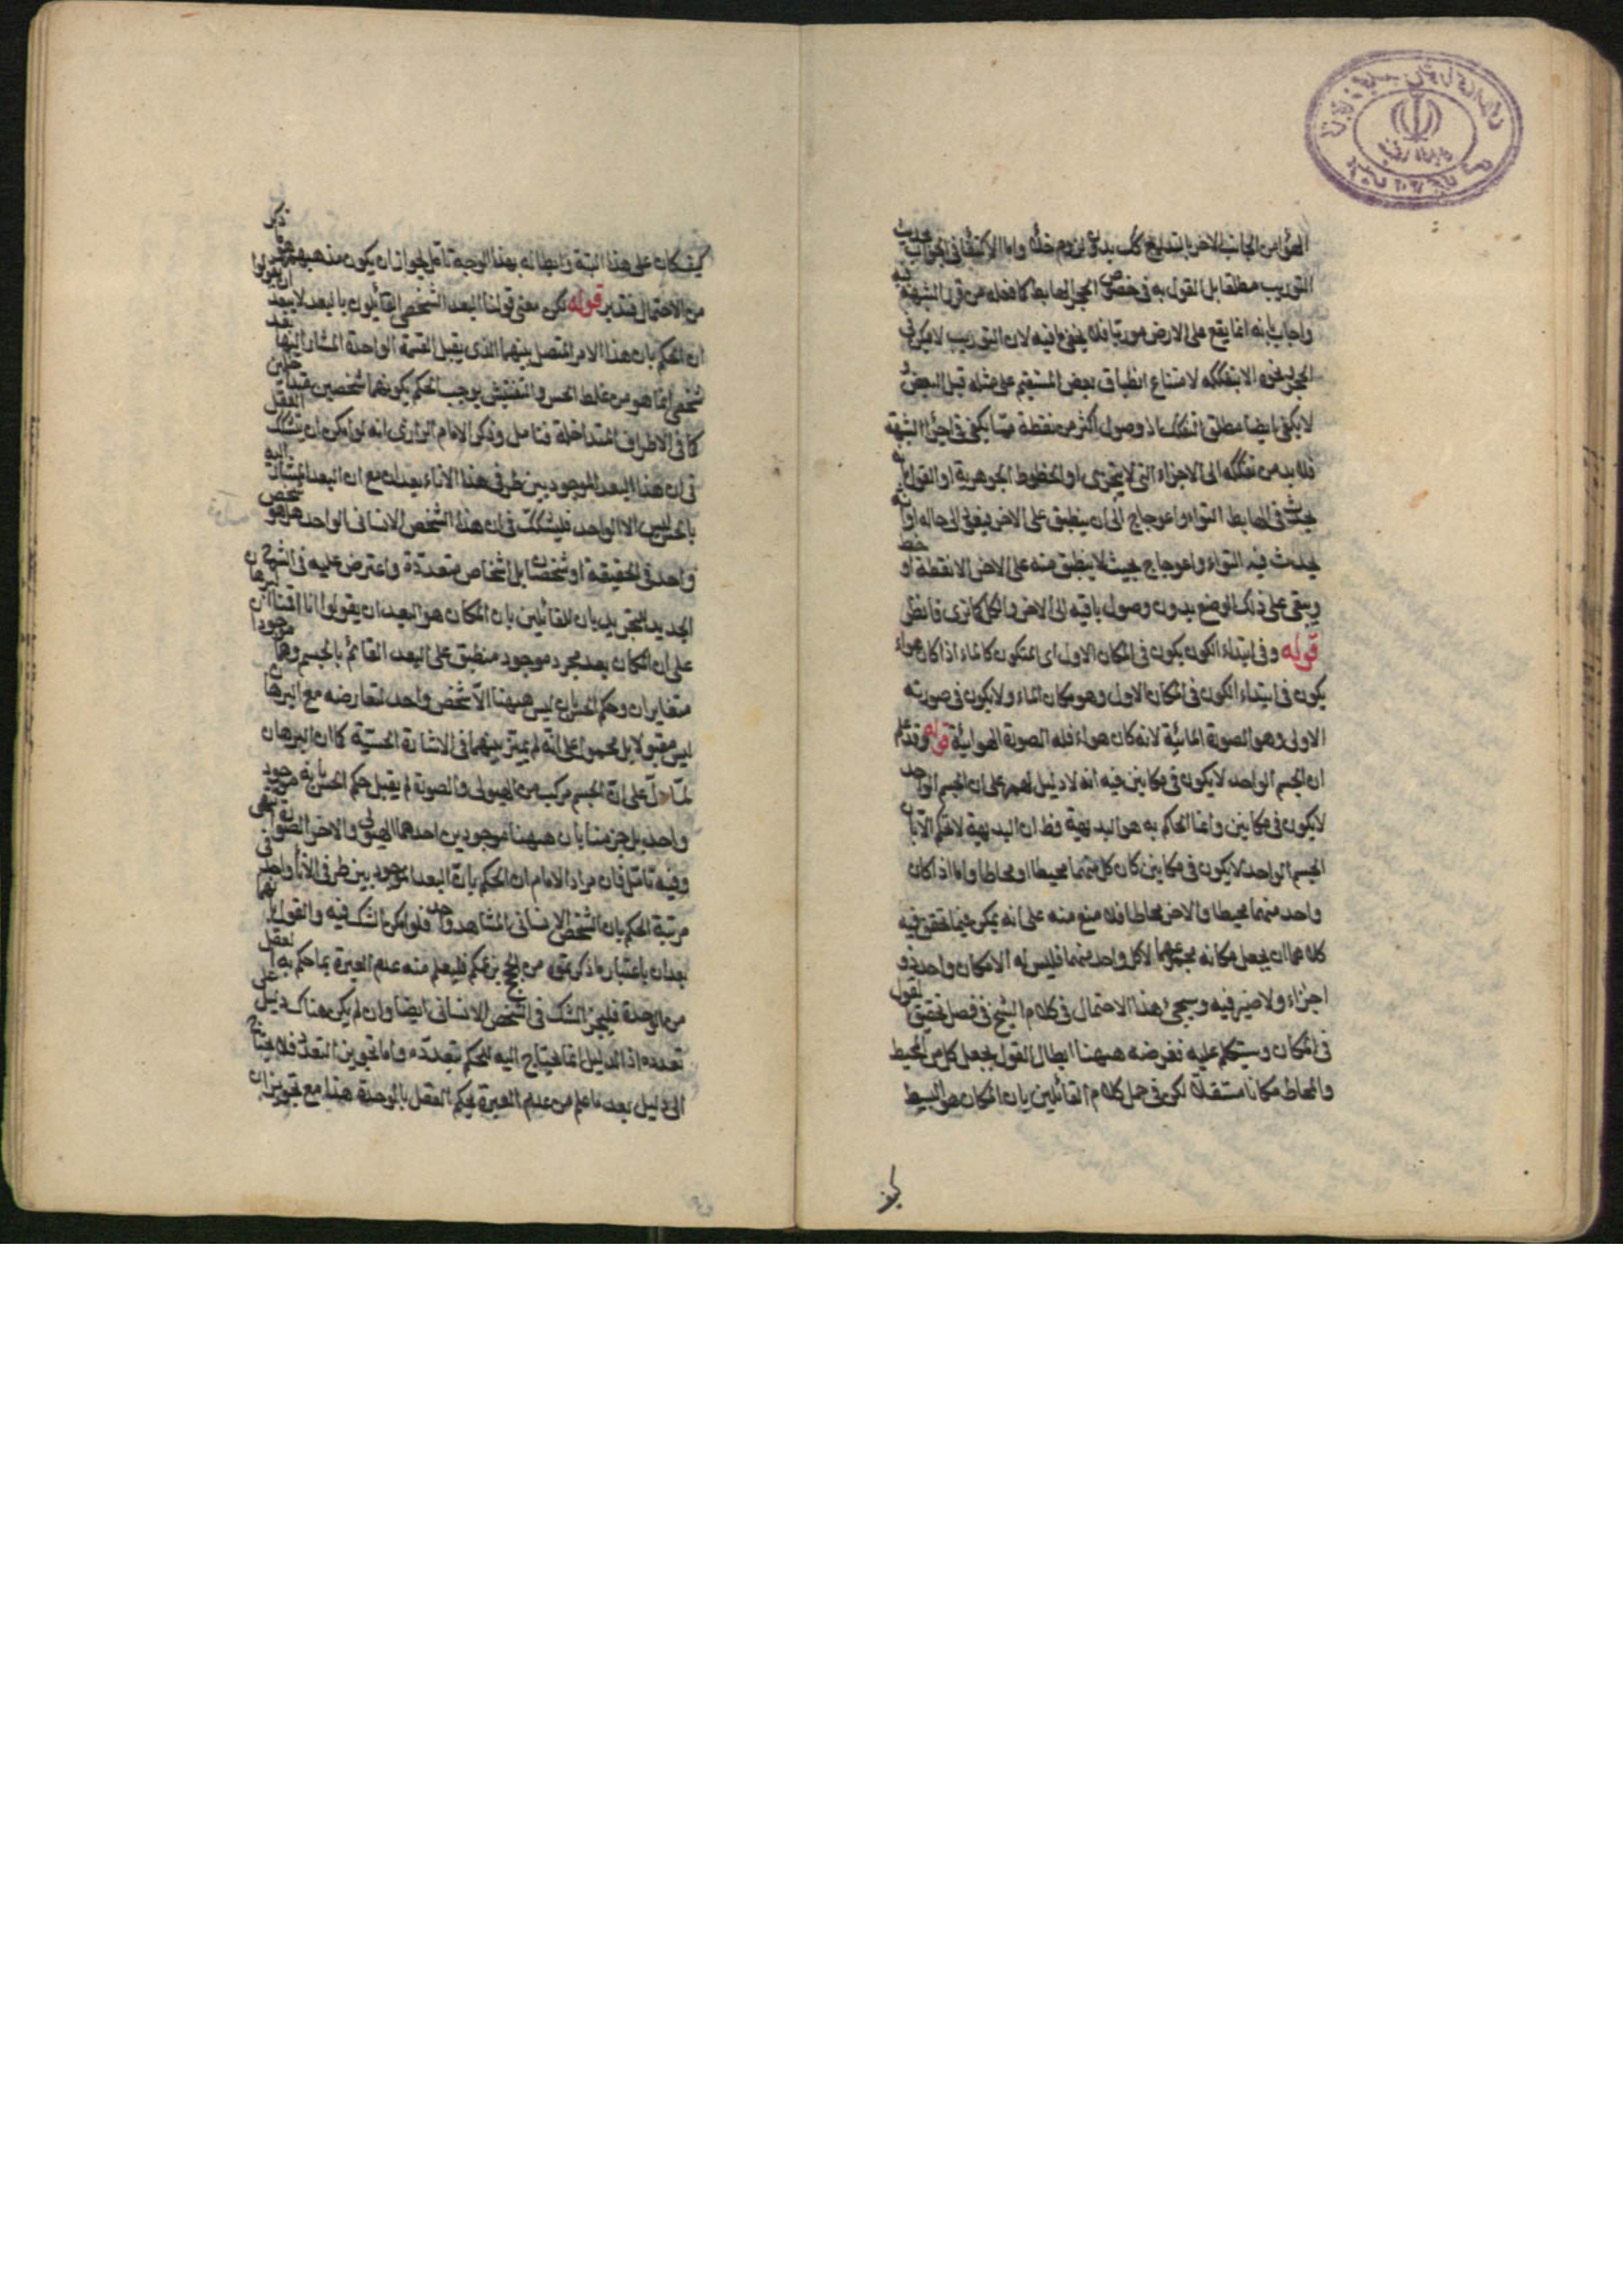 الهواء من الجانب الاخر بالتدريج كك بدون لزوم خلاء واما الاكتفاء في الجواب بحديث
التوريب مطلقا بل القول به في خصوص الحجر الهابط كما فعله من قرر الشبهة فيه
واجاب بانه انما يقع على الارض موربا فلا ينفع فيه لان التوريب لا يمكن في
الحجر الا بتفككه لامتناع انطباق بعض المستقيم على مثله قبل البعض و
لا يكفي ايضا مطلق التفكك اذ وصول اكثر من نقطة مما يكفي في اجراء الشبهة
فلا بد من تفككه الى الاجزاء التي لا يتجزى او الخطوط الجوهرية او القول بانه
يحدث في الهابط التواء واعوجاج الى ان ينطبق على الاخر فيعود الى حاله او انه
يحدث فيه التواء واعوجاج بحيث لا ينطبق منه على الارض الا نقطة او خط
ويبقى على ذلك الوضع بدون وصول باقيه الى الاخر والكل كما ترى فانظر
قوله وفي ابتداء الكون يكون في المكان الاول اى المتكون كالماء اذا كان هواء
يكون في ابتداء الكون في المكان الاول وهو مكان الماء ولا يكون في صورته
الاولى وهو الصورة المائية لانه كان هواء فله الصورة الهوائية قوله وقد علم
ان الجسم الواحد لا يكون في مكانين فيه انه لا دليل لهم على ان الجسم الواحد
لا يكون في مكانين وانما الحاكم به هو البديهة وظ ان البديهة لا تحكم الا بان
الجسم الواحد لا يكون في مكانين كان كل منهما محيطا او محاطا واما اذا كان
واحد منهما محيطا والاخر محاطا فلا منع منه على انه يمكن فيما تحقق فيه
كلاهما ان يجعل مكانه مجموعهما لا كل واحد منهما فليس له الا مكان واحد ذو
اجزاء ولا ضير فيه وسيجئ هذا الاحتمال في كلام الشيخ في فصل تحقيق القول
في المكان وسيتكلم عليه فغرضه ههنا ابطال القول بجعل كل من المحيط
والمحاط مكانا مستقلا لكن في حمل كلام القائلين بان المكان هو البسيط
كيف كان على هذا البتة وابطاله بهذا الوجه تامل لجواز ان يكون مذهبهم ما ذكر
من الاحتمال فتدبر قوله لكن معنى قولنا البعد الشخصي القائلون بالبعد لا يبعد ان يقولوا
ان الحكم بان هذا الامر المتصل بينهما الذى يقبل القسمة الواحدة المشار اليها بعد
شخصي انما هو من غلط الحس والتفتيش يوجب الحكم بكونهما شخصين متداخلين
كما في الاطراف المتداخلة فتامل وذكر الامام الرازي انه لو امكن ان يتشكك العقل
في ان هذا البعد الموجود بين طرفي هذا الاناء بعدان مع ان البعد المشار اليه
بالحس ليس الا الواحد فليشكك في ان هذا الشخص الانساني الواحد هل هو شخص
واحد في الحقيقة او شخصان بل اشخاص متعددة واعترض عليه في الشرح
الجديد للتجريد بان للقائلين بان المكان هو البعد ان يقولوا انا اقمنا البرهان
على ان المكان بعد مجرد موجود منطبق على البعد القائم بالجسم وهما موجودان
متغايران وحكم الحس بان ليس ههنا الا شخص واحد لتعارضه مع البرهان
ليس مقبولا بل محمول على انه لم يميز بينهما في الاشارة الحسية كما ان البرهان
لما دل على ان الجسم مركب من الهيولى والصورة لم يقبل حكم الحس بانه موجود
واحد بل جزمنا بان ههنا موجودين احدهما الهيولى والاخر الصورة انتهى
وفيه تامل فان مراد الامام ان الحكم بان البعد الموجود بين طرفي الاناء واحد في
مرتبة الحكم بان الشخص الانساني المشاهد واحد فلو امكن الشك فيه والقول بانهما
بعدان باعتبار ما ذكرتموه من الحجج بزعمكم فليعلم منه عدم العبرة بما حكم به العقل
من الوحدة فليجز الشك في الشخص الانساني ايضا وان لم يكن هناك دليل على
تعدده اذ الدليل انما يحتاج اليه للحكم بتعدده واما تجويز التعدد فلا يحتاج
الى دليل بعد ما علم من عدم العبرة بحكم العقل بالوحدة هذا مع تجويز ان